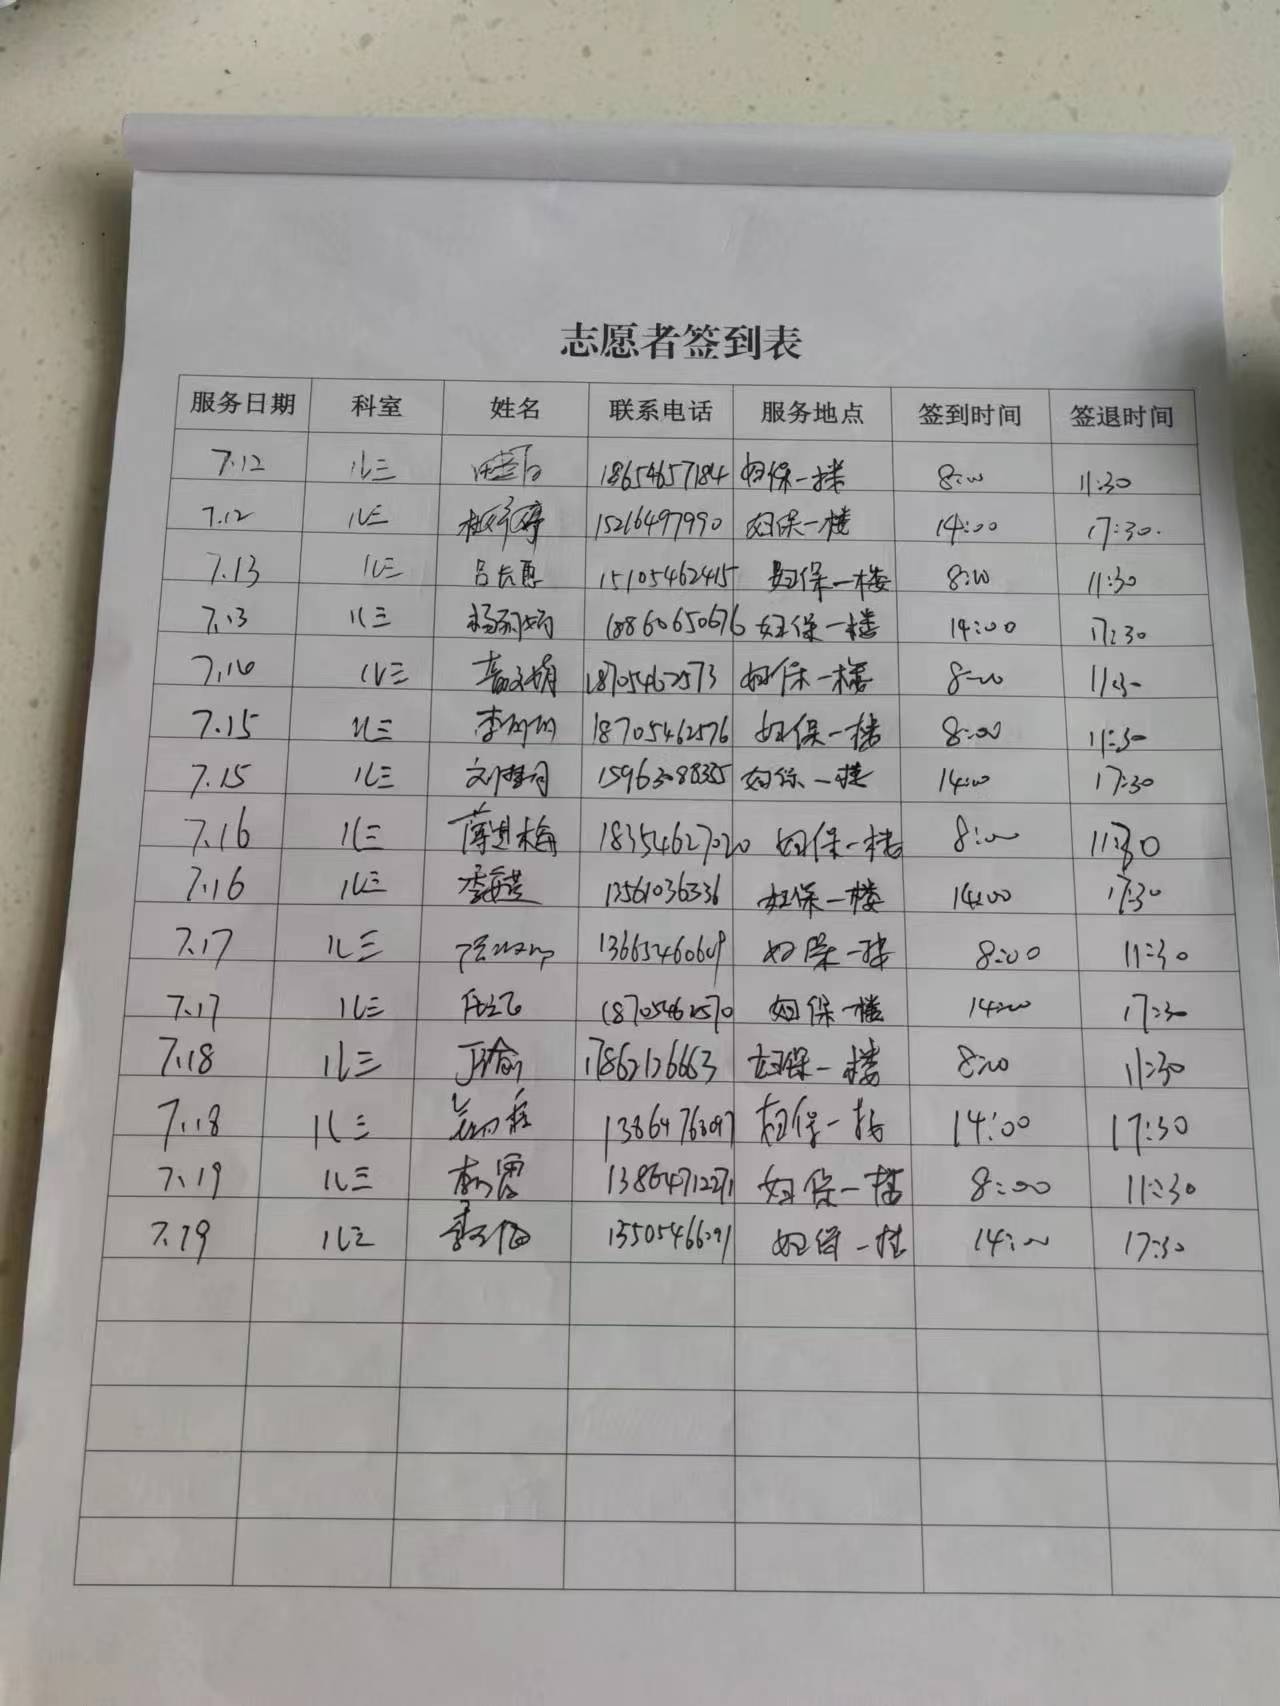 志愿者签到表
服务日期 科室 姓名 联系电话 服务地点 签到时间 签退时间
7.12 儿三 18654657184 妇保一楼 8:00 11:30
7.12 儿三 15216497990 妇保一楼 14:00 17:30.
7.13 儿三 吕长惠 15105462415 妇保一楼 8:00 11:30
7.13 儿三 18860650676 妇保一楼 14:00 17:30
儿三 18705462573 妇保一楼 8:00 11:30
7.15 儿三 18705462576 妇保一楼 8:00 11:30
7.15 儿三 15963088335 妇保一楼 14:00 17:30
7.16 儿三 薄进梅 18354627020 妇保一楼 8:00 11:30
7.16 儿三 13561036336 妇保一楼 14:00 17:30
7.17 儿三 妇保一楼 8:00 11:30
7.17 儿三 18705462570 妇保一楼 14:00 17:30
7.18 儿三 17862126663 妇保一楼 8:00 11:30
7.18 儿三 妇保一楼 14:00 17:30
7.19 儿三 13864712271 妇保一楼 8:00 11:30
7.19 儿三 妇保一楼 14:00 17:30